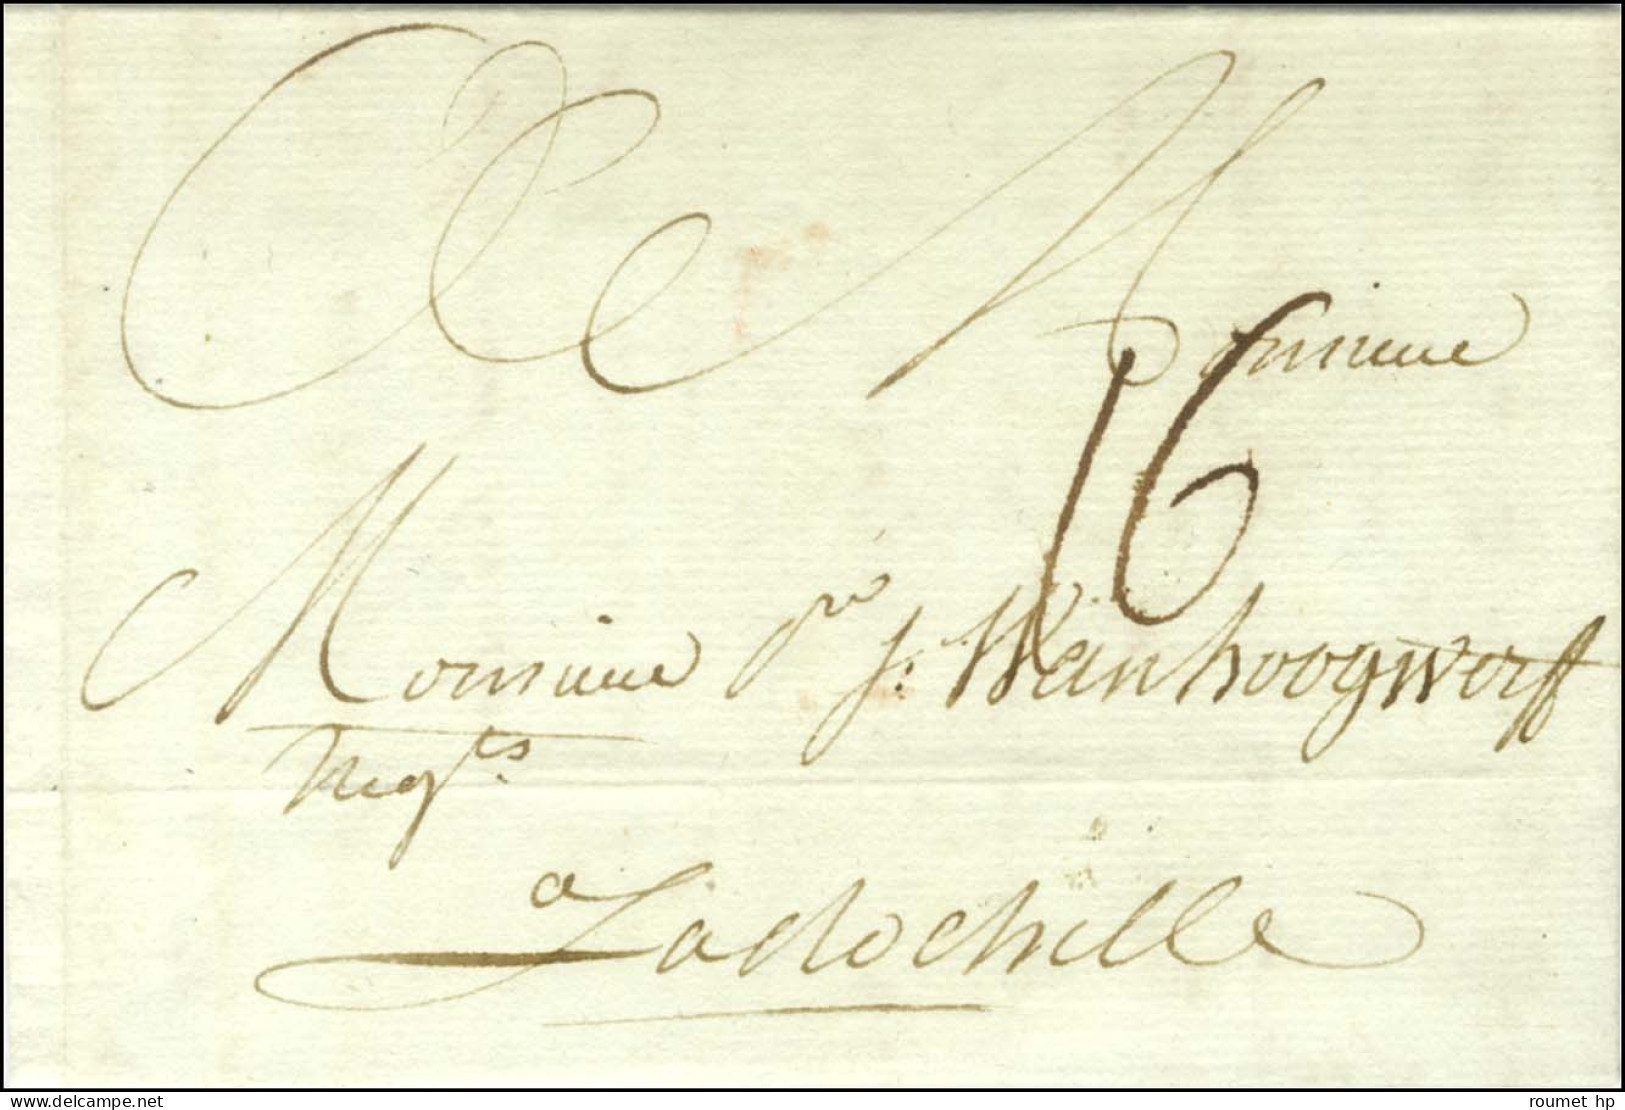 A Monsieur
16
Monsieur pre J. Wanhoogwerf
Negts
a LaRochelle
delcampe.net
roumet hp